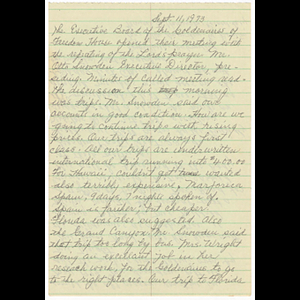 Sept. 11, 1973
The Executive Board of the Goldenaires of
Freedom House opened their meeting with
the repeating of the Lord's Prayer. Mr.
Otto Snowden Executive Director, pre-
siding. Minutes of called meeting read.
The discussion this morning
was trips. Mr. Snowden said our
account in good condition. How are we
going to continue trips with rising
prices. Our trips are always first
class. All our trips are underwritten
international trip running into $400.00
For Hawaii, couldn't get wanted
also terribly expensive. Marjorica
Spain, 9 days, 7 nights spoken of.
Spain is farther, but cheaper
Florida was also suggested. Also
the Grand Canyon. Mr. Snowden said
that trip too long by bus. Mrs. Wright
doing an excellent job in her
research work, for the Goldenaires to go
to the right places. Our trip to Florida